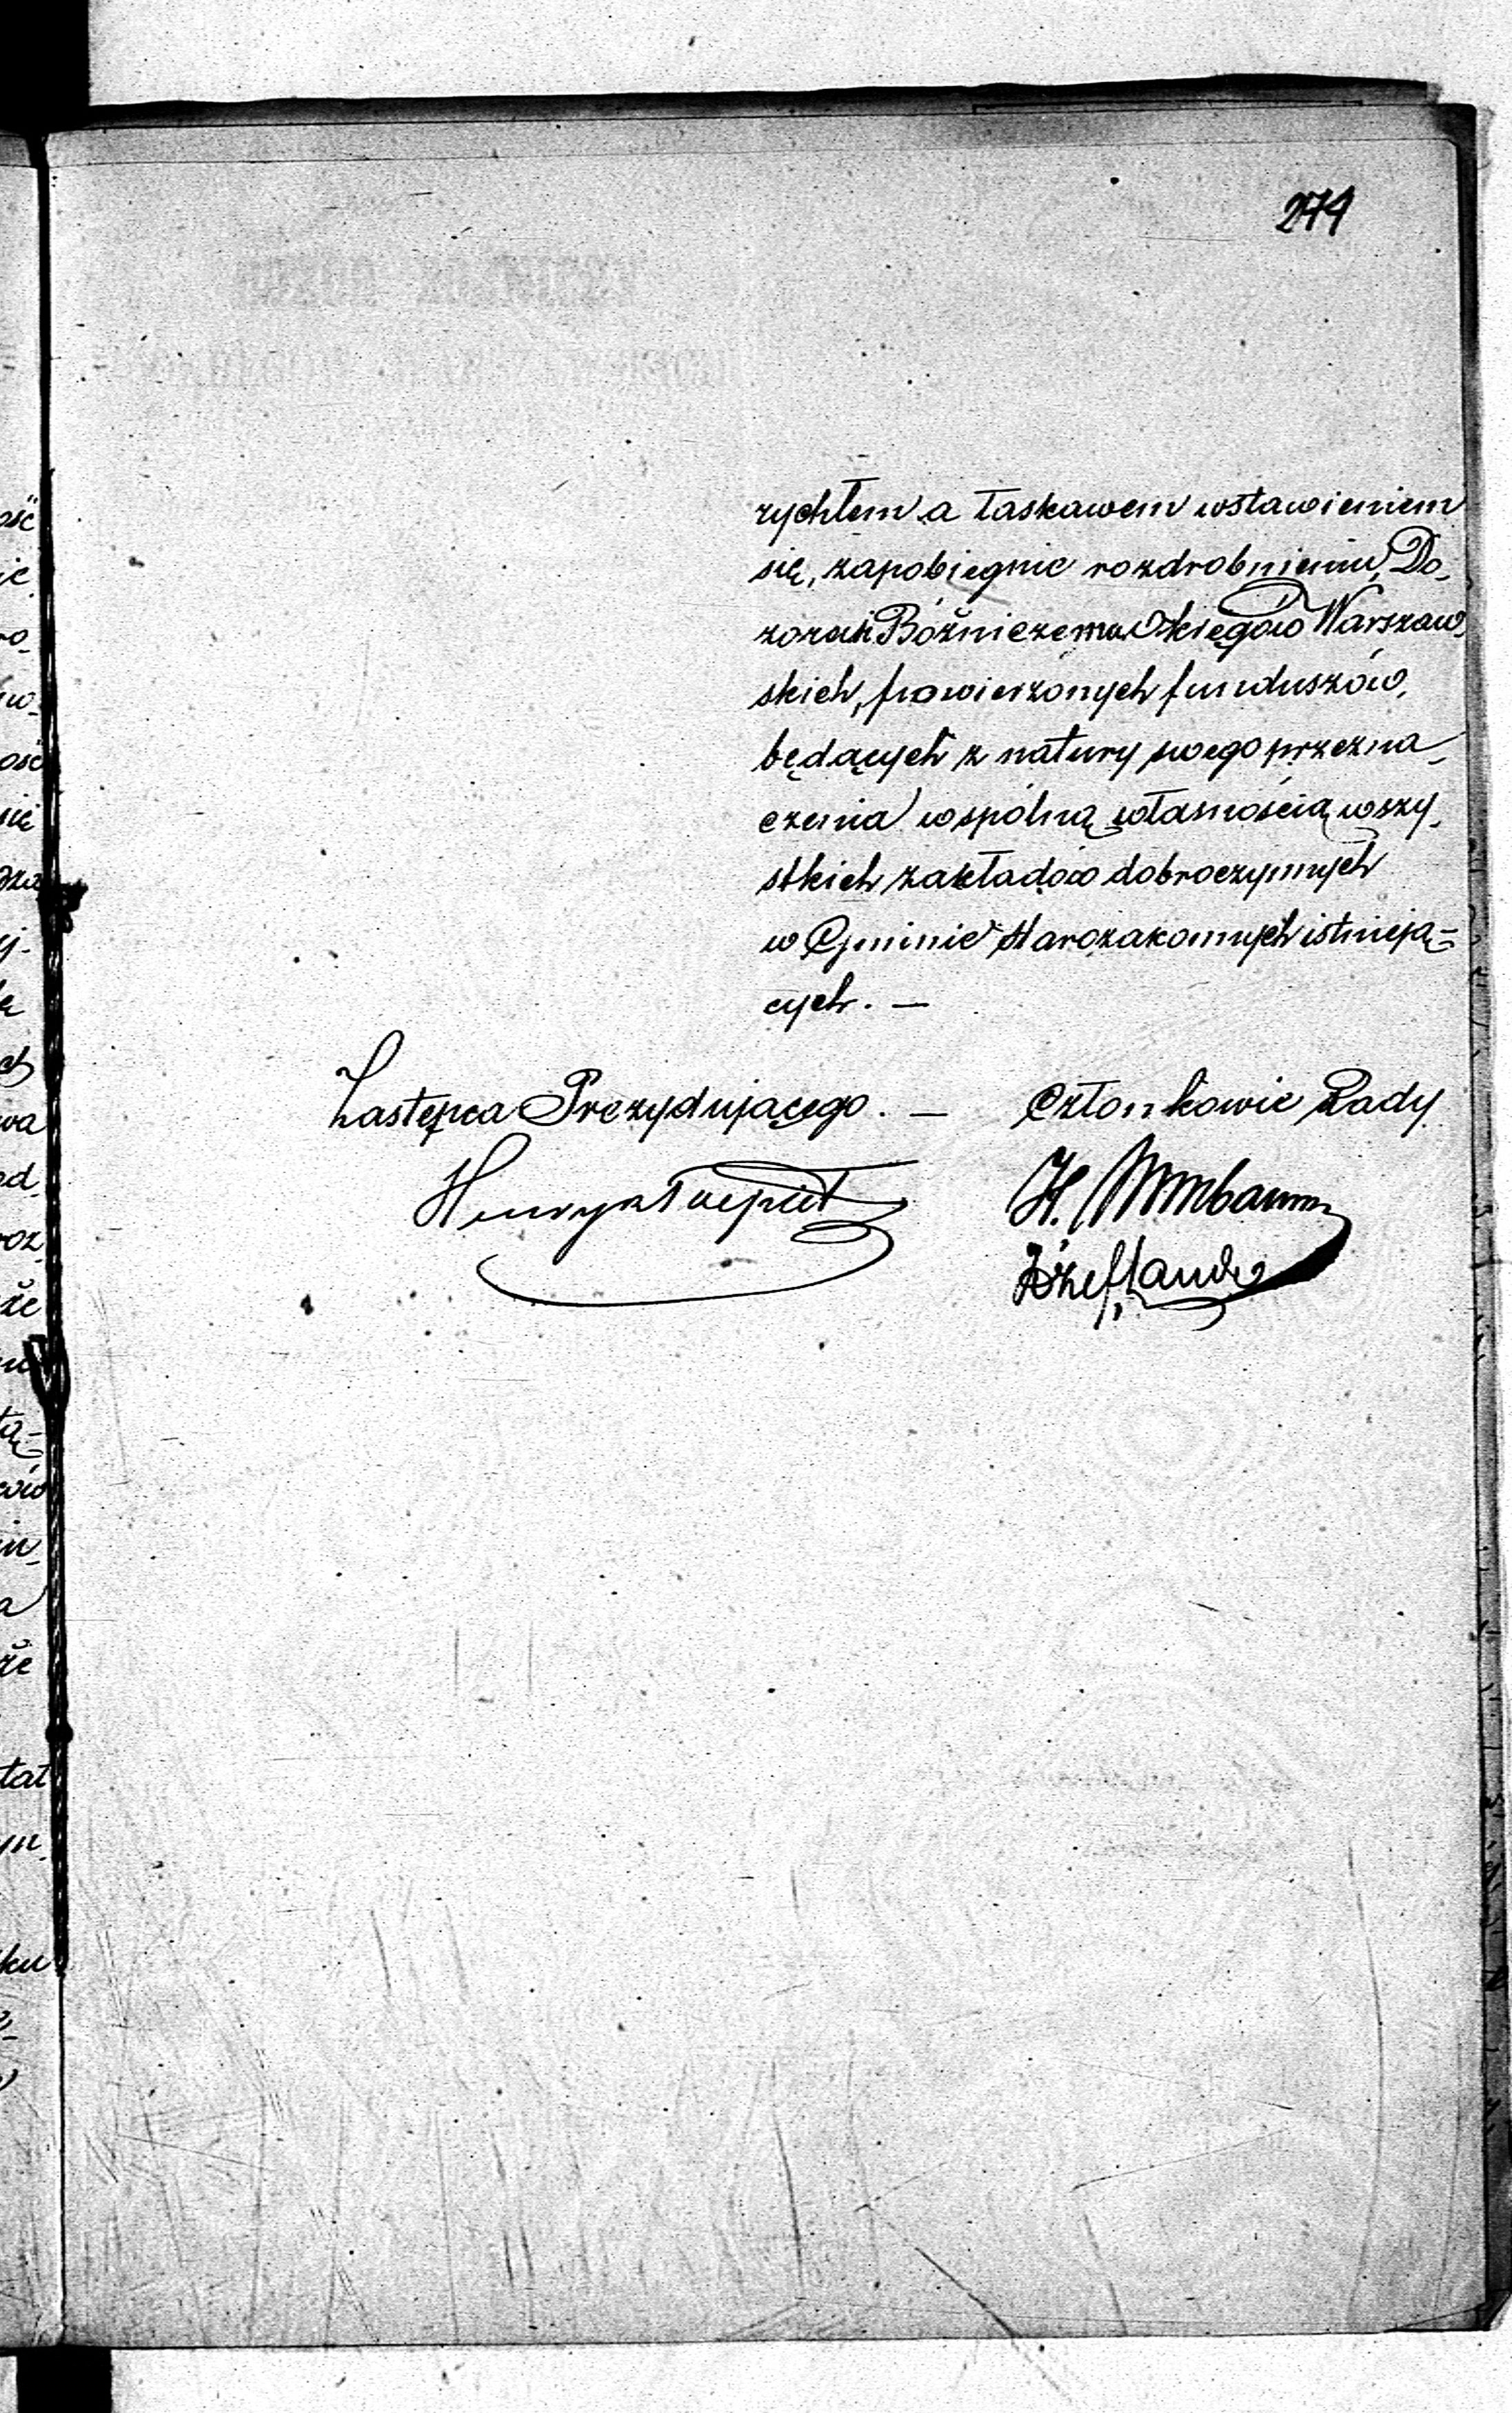 274
rychłem a łaskawem wstawieniem
się, zapobiegnie rozdrobnieniu, Do-
zorom Bóżniczemu Okięgów Warszaw-
skich, powierzonych funduszów,
będących z natury swego przezna-
czenia wspólną własnością wszy-
stkich zakładów dobroczynnych
w Gminie Starozakonnych istnieją-
cych. —
Zastępca Prezydującego. — Członkowie Rady
Henryk Toeplitz H. Nimbaum
Józef Landa